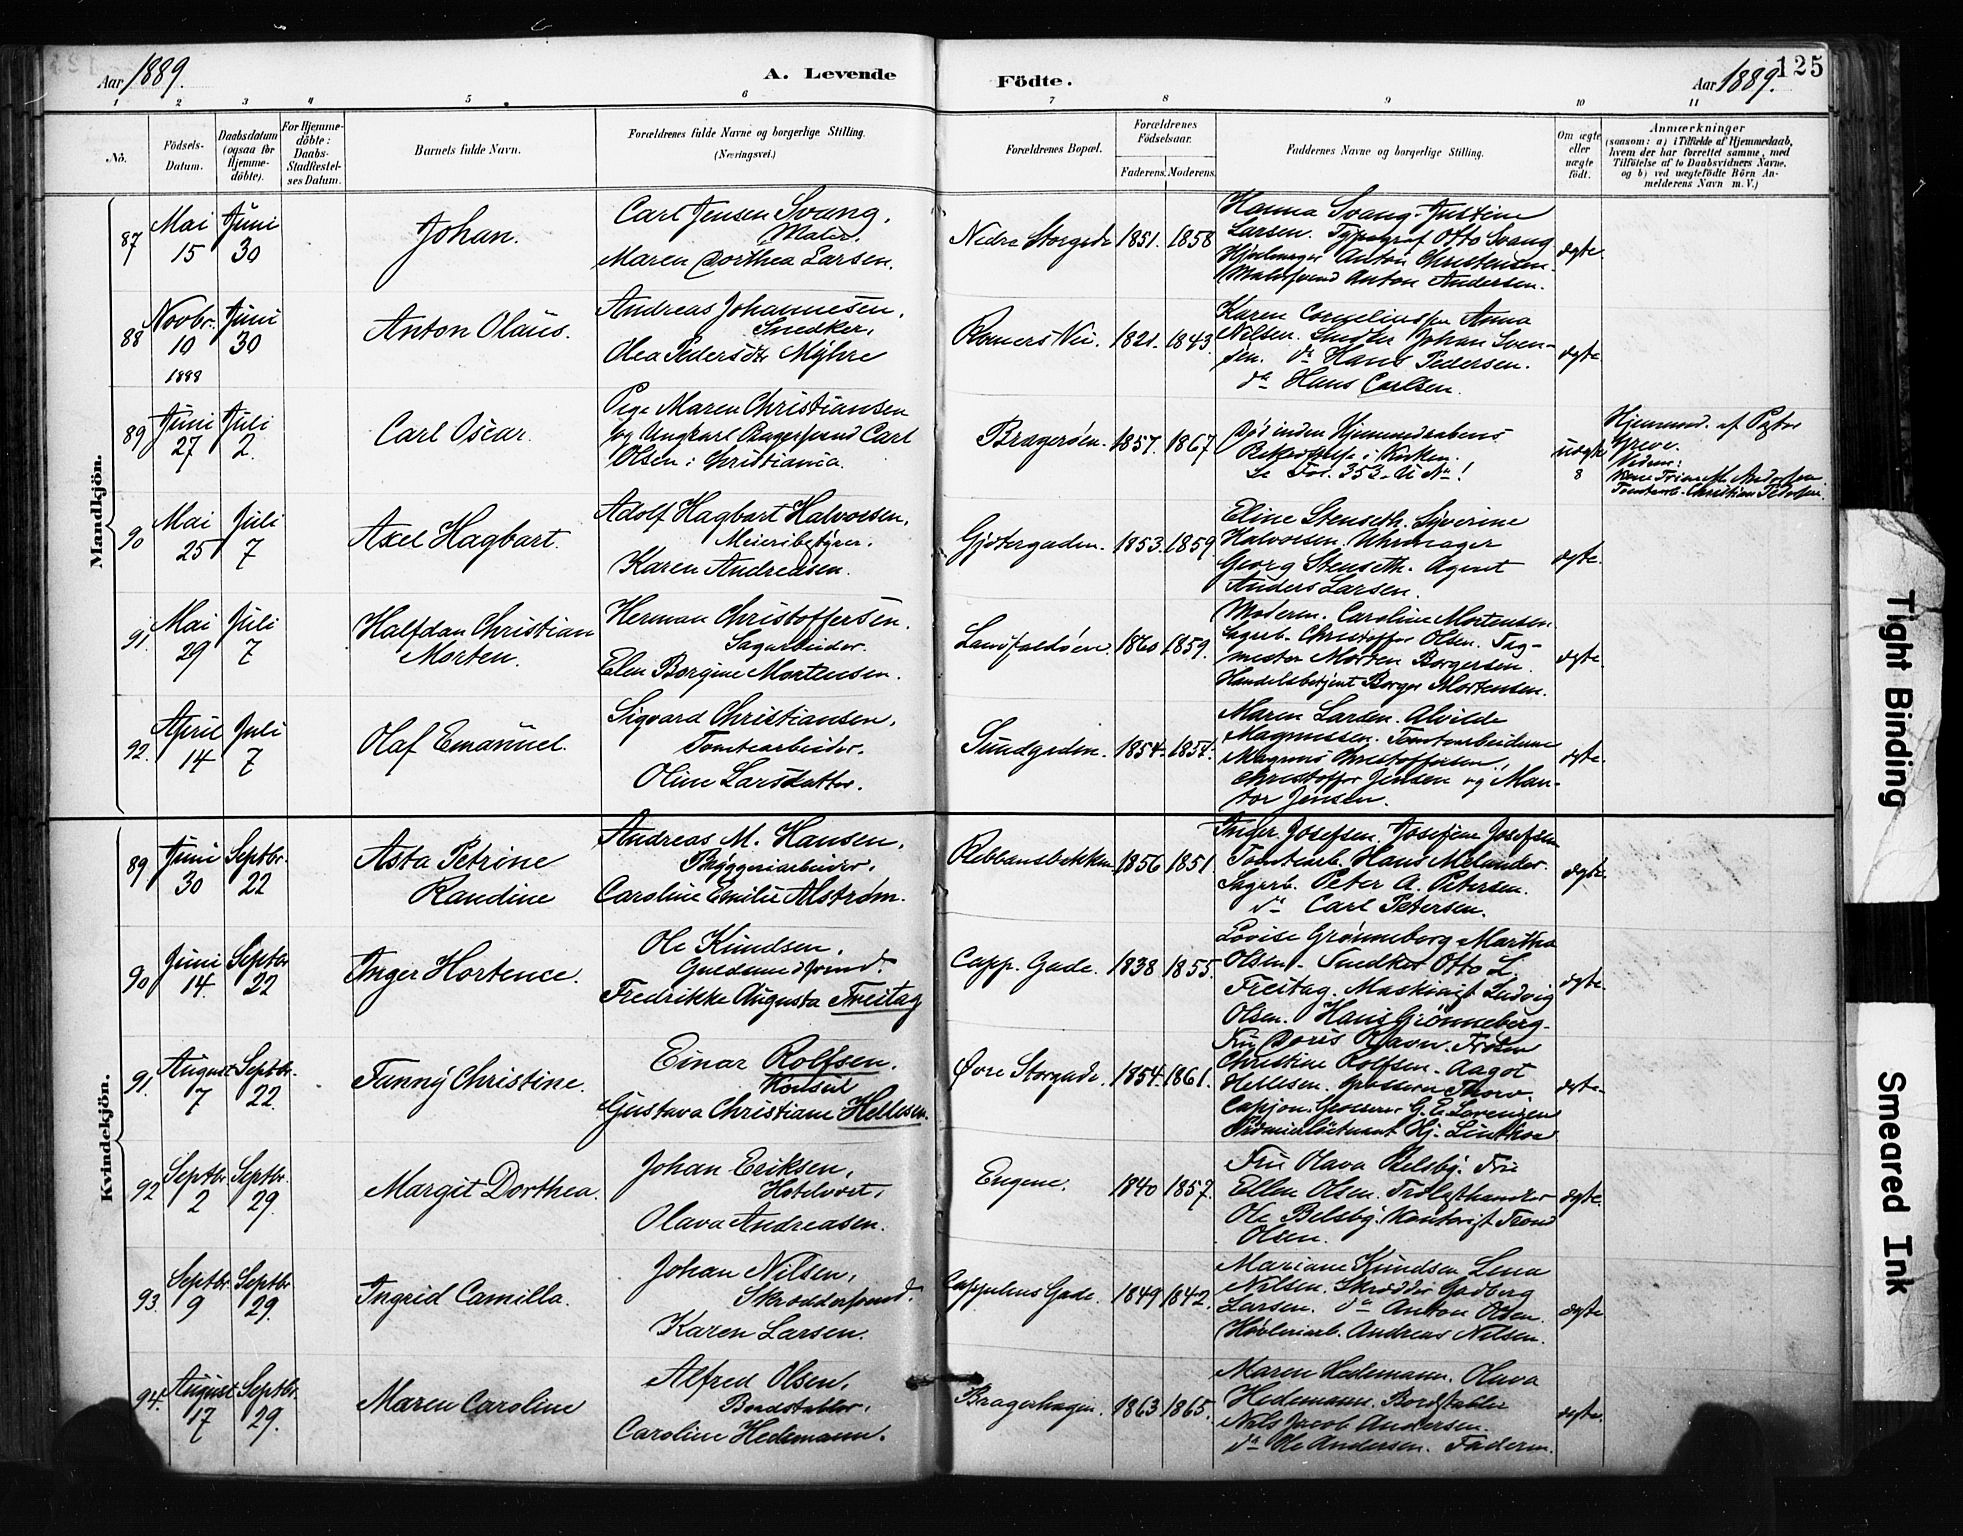 Aar 1889.
A. Levende Födte.
Aar 1889.
125
1 2 3 4 5 6 7 8 9 10 11
No.
Födsels-Datum.
Daabsdatum (ogsaa for Hjemme-döbte).
For Hjemme-döbte: Daabs-Stadfæstel-ses Datum.
Barnets fulde Navn.
Forældrenes fulde Navne og borgerlige Stilling.
(Næringsvei.)
Forældrenes Bopæl.
Forældrenes Födselsaar.
Faderens. Moderens.
Faddernes Navne og borgerlige Stilling.
Om ægte eller uægte födt.
Anmærkninger
(saasom: a) i Tilfælde af Hjemmedaab, hvem der har forrettet samme, med Tilföielse af to Daabsvidners Navne, og b) ved uægtefödte Börn Anmelderens Navn m. V.)
Mandkjön.
87 Mai 15 Juni 30
Johan.
Carl Jensen Svang,
Maler.
Maren Dorthea Larsen.
Nedre Storgade 1851. 1858
Hanna Svang. Justine
Larsen. Typograf Otto Svang
Anton Christensen
Malersvend Anton Andersen.
ægte.
88 Novbr. 10 1888 Juni 30
Anton Olaus.
Andreas Johannesen,
Snedker,
Olea Pedersdtr Myhre
Romers Vei. 1821. 1843.
Karen Corneliussen Anna
Nilsen. Snedker Johan Sven-
sen. do Hans Pedersen.
do Hans Carlsen.
ægte
89 Juni 27 Juli 2.
Carl Oscar.
Pige Maren Christiansen
og Ungkarl Bagersvend Carl
Olsen i Christiania.
Bragerøen. 1857. 1867
Død inden Hjemmedaabens
Bekræftelse i Kirken.
Se Fol. 353 - No 1
uægte
8
Hjemmed. af Pastor
Greve.
Vidner:
Christian Pedersen.
90 Mai 25 Juli 7
Axel Hagbart.
Adolf Hagbart Halvorsen,
Meieribestyrer.
Karen Andreasen.
Gjetergaden. 1853. 1859
Eline Stenseth. Syverine
Halvorsen. Uhrmager
Georg Stenseth. Agent
Anders Larsen.
ægte.
91. Mai 29 Juli 7
Halfdan Christian
Morten.
Herman Christoffersen.
Sagarbeider.
Elen Borgine Mortensen.
Landfaldøen. 1860 1859.
Moderen. Caroline Mortensen
Sagarb. Christoffer Olsen. Sag-
mester Morten Borgersen.
Handelsbetjent Borger Mortensen.
ægte.
92. April 14 Juli 7
Olaf Emanuel.
Sigvard Christiansen,
Tomtearbeider.
Oline Larsdatter.
Sundgaden. 1854. 1854.
Maren Larsen. Alvilde
Magnussen. Tomtearbeiderne
Magnus Christoffersen,
Christoffer Jensen og Man-
tor Jensen.
ægte.
Kvindekjön.
89 Juni 30 Septbr. 22
Asta Petrine
Randine
Andreas M. Hansen,
Bryggeriarbeider,
Caroline Emilie Alstrøm.
Ræbbansbakken 1856 1851.
Inger Josefsen, Josefine Josefsen
Tomtearb. Hans Melander.
Sagarb. Peter A. Petersen.
do Carl Petersen.
ægte.
90 Juni 14. Septbr 22
Inger Hortence.
Ole Knudsen,
Guldsmedsvend.
Fredrikke Augusta Freitag
Capp. Gade. 1838 1855.
Lovise Grønneberg. Martha
Olsen. Snedker Otto L.
Freitag. Maskinist Ludvig
Olsen. Hans Grønneberg.
ægte.
91. August 7 Septbr. 22.
Fanny Christine.
Einar Rolfsen.
Konsul
Gustava Christiane Hellesen.
Øvre Storgade. 1854. 1861.
Fru Doris Ravn. Frøken
Christine Rolfsen. Aagot
Hellesen. Grosserer Thorv.
Grosserer G. E. Lorenzen
Premierløitnant Hj. Linthoe
ægte.
92 Septbr. 2 Septbr. 29.
Margit Dorthea.
Johan Eriksen,
Hotelvært,
Olava Andreasen.
Engene. 1840 1857.
Fru Olava Belsby. Fru
Ellen Olsen. Trælasthandler
Ole Belsby. Kontorist Trond
Olsen.
ægte.
93. Septbr. 9 Septbr 29.
Ingrid Camilla.
Johan Nilsen,
Skreddersvend.
Karen Larsen.
Cappelens Gade. 1849 1842.
Mariane Knudsen Lena
Nilsen. Skrædder Gudberg
Larsen. do Anton Olsen.
Høvleriarb. Andreas Nilsen.
ægte
94. August 17 Septbr. 29.
Maren Caroline
Alfred Olsen.
Bordstabler,
Caroline Hedemann.
Bragerhagen. 1863 1865.
Maren Hedemann. Olava
Hedemann. Bordstabler
Nils Jacob Andersen.
do Ole Andersen. Faderen.
ægte.
Tight Binding
Smeared Ink